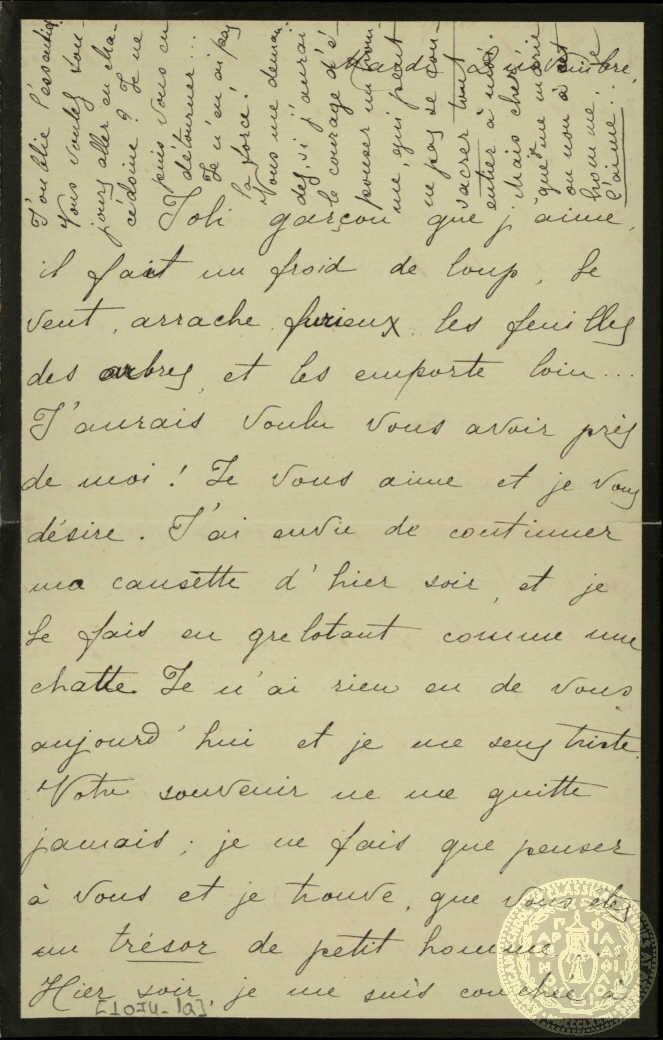 Mardi, 2 novembre,
Joli garçon que j'aime,
il fait un froid de loup, le
vent, arrache, furieux les feuilles
des arbres, et les emporte loin...
J'aurais voulu vous avoir près
de moi! Je vous aime et je vous
désire. J'ai envie de continuer
ma causette d'hier soir, et je
le fais en grelotant comme une
chatte. Je n'ai rien eu de vous
aujourd'hui et je me sens triste.
Votre souvenir ne me quitte
jamais; je ne fais que penser
à vous et je trouve, que vous êtes
un trésor de petit homme...
Hier soir, je me suis couchée à
J'oublie l'essentiel
Vous voulez tou-
jours aller en Ma-
cédoine? Je ne
puis vous en
détourner...
Je n'en ai pas
la force!
Vous me deman-
dez, si j'aurai
le courage d'é-
pouser un hom-
me, qui peut
ne pas se con-
sacrer tout
entier à moi.
Mais cher,
que je me marie
ou non à cet
homme, je
l'aime...